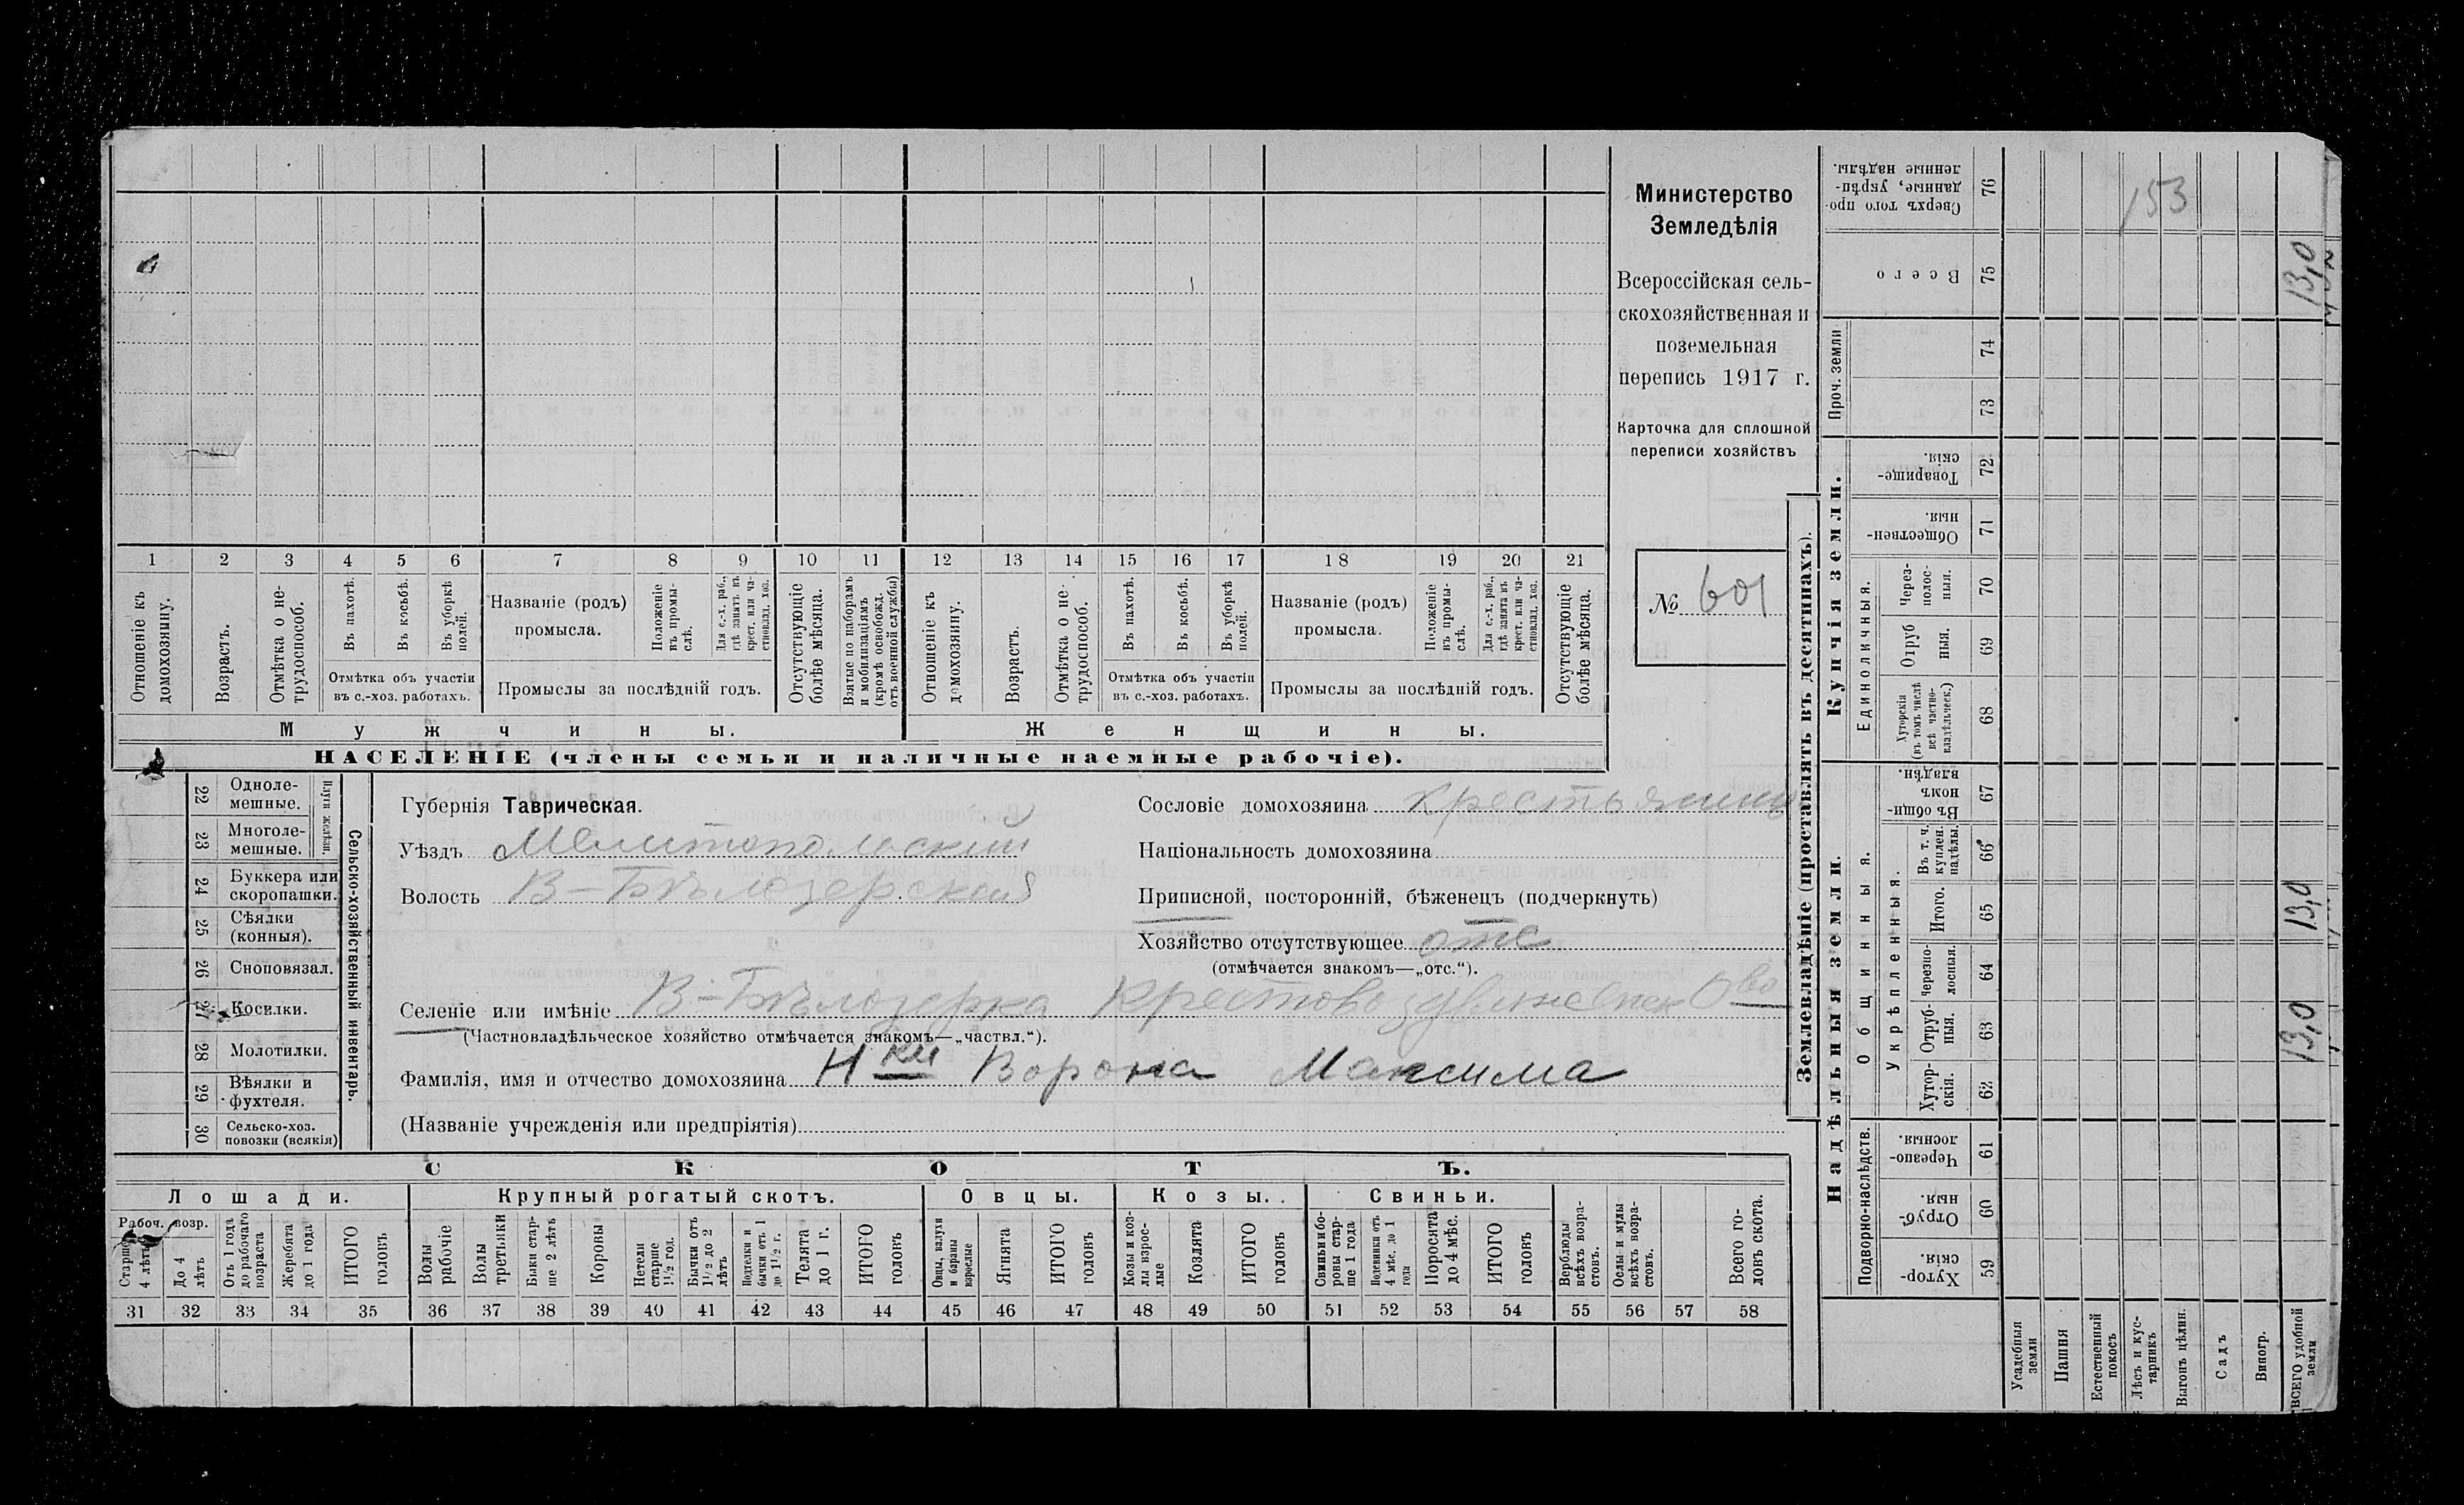 Министерство
Земледѣлія
Всероссійская сель-
скохозяйственная и
поземельная
перепись 1917 г.
Карточка для сплошной
переписи хозяйствъ
№ 601
1 2 3 4 5 6 7 8 9 10 11 12 13 14 15 16 17 18 19 20 21
Отношеніе къ домохозяину.
Возрастъ.
Отмѣтка о не-трудоспособ.
Въ пахотѣ.
Въ косьбѣ.
Въ уборкѣ полей.
Отмѣтка объ участіи
въ с.-хоз. работахъ.
Названіе (родъ)
промысла.
Положеніе въ промы-слѣ.
Для с.-х. раб., гдѣ занятъ въ крест. или ча-стновлад. хоз.
Промыслы за послѣдній годъ.
Отсутствующіе болѣе мѣсяца.
Взятые по наборамъ и мобилизаціямъ (кромѣ освобожд. отъ военной службы)
Отношеніе къ домохозяину.
Возрастъ.
Отмѣтка о не-трудоспособ.
Въ пахотѣ.
Въ косьбѣ.
Въ уборкѣ полей.
Отмѣтка объ участіи
въ с.-хоз. работахъ.
Названіе (родъ)
промысла.
Положеніе въ промы-слѣ.
Для с.-х. раб., гдѣ занята въ крест. или ча-стновлад. хоз.
Промыслы за послѣдній годъ.
Отсутствующіе болѣе мѣсяца.
Мужчины. Женщины.
НАСЕЛЕНІЕ (члены семьи и наличные наемные рабочіе).
Сельско-хозяйственный инвентарь.
Плуги желѣзн.
22 Одноле-мешные.
23 Многоле-мешные.
24 Буккера или скоропашки.
25 Сѣялки (конныя).
26 Сноповязал.
27 Косилки.
28 Молотилки.
29 Вѣялки и фухтеля.
30 Сельско-хоз. повозки (всякія)
Губернія Таврическая.
Уѣздъ Мелитопольскій
Волость В-Бѣлозерская
Сословіе домохозяина крестьянинъ
Національность домохозяина
Приписной, посторонній, бѣженецъ (подчеркнуть)
Хозяйство отсутствующее отс
(отмѣчается знакомъ—„отс.“).
Селеніе или имѣніе В-Бѣлозерка Крестовоздвиженск О во
(Частновладѣльческое хозяйство отмѣчается знакомъ—„частвл.“).
Фамилія, имя и отчество домохозяина Н ки Ворона Максима
(Названіе учрежденія или предпріятія)
СКОТЪ.
Лошади. Крупный рогатый скотъ. Овцы. Козы. Свиньи.
Рабоч. возр.
Старше 4 лѣтъ
До 4 лѣтъ
Отъ 1 года до рабочаго возраста
Жеребята до 1 года
ИТОГО головъ
Волы рабочіе
Волы третьяки
Быки стар-ше 2 лѣтъ
Коровы
Нетели старше 1½ год.
Бычки отъ 1½ до 2 лѣтъ
Подтелки и бычки отъ 1 до 1½ г.
Телята до 1 г.
ИТОГО головъ
Овцы, валухи и бараны взрослые
Ягнята
ИТОГО головъ
Козы и коз-лы взрос-лые
Козлята
ИТОГО головъ
Свиньи и бо-ровы стар-ше 1 года
Подсвинки отъ 4 мѣс. до 1 года
Поросята до 4 мѣс.
ИТОГО головъ
Верблюды всѣхъ возра-стовъ.
Ослы и мулы всѣхъ возра-стовъ.
Всего го-ловъ скота.
31 32 33 34 35 36 37 38 39 40 41 42 43 44 45 46 47 48 49 50 51 52 53 54 55 56 57 58
Землевладѣніе (проставлять въ десятинахъ).
Надѣльныя земли. Купчія земли. Проч. земли
Подворно-наслѣдств.
Общинныя.
Укрѣпленныя.
Единоличныя.
Хутор-скія. 59
Отруб-ныя. 60
Черезпо-лосныя. 61
Хутор-скія. 62
Отруб-ныя. 63
Черезпо-лосныя. 64
Итого. 65
Въ т. ч. куплен. надѣлы. 66
Въ общи-номъ владѣн. 67
Хуторскія (въ томъ числѣ всѣ частно-владѣльческ.) 68
Отруб ныя. 69
Через-полос-ныя. 70
Обществен-ныя. 71
Товарище-скія. 72
73
74
Всего 75
Сверхъ того про-данные, укрѣп-ленные надѣлы. 76
Усадебныя земли
Пашня
Естественный покосъ
Лѣсъ и кус-тарникъ
Выгонъ цѣлин.
Садъ
Виногр.
ВСЕГО удобной земли
153
13,0
13,0
13,0